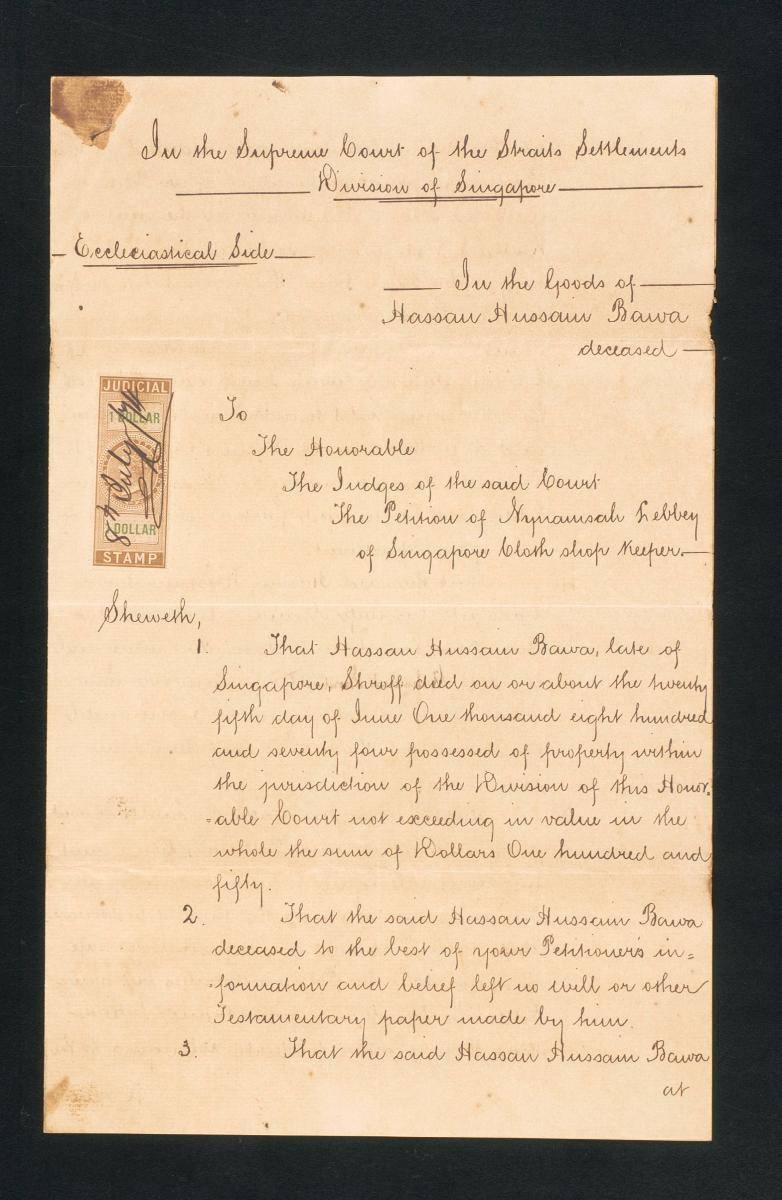 In the Supreme Court of the Straits Settlements
Division of Singapore
Eccleciastical Side
In the Goods of
Hassan Hussain Bawa
deceased
JUDICIAL
1 DOLLAR
8th July /74
1 DOLLAR
STAMP
To
The Honorable
The Judges of the said Court
The Petition of Nynamsah Lebbey
of Singapore Cloth shop keeper.
Sheweth,
1. That Hassan Hussain Bawa, late of
Singapore, Shroff died on or about the twenty
fifth day of June One thousand eight hundred
and seventy four possessed of property within
the jurisdiction of the Division of this Honor.
=able Court not exceeding in value in the
whole the sum of Dollars One hundred and
fifty.
2. That the said Hassan Hussain Bawa
deceased to the best of your Petitioner's in=
=formation and belief left no will or other
Testamentary paper made by him.
3. That the said Hassan Hussain Bawa
at